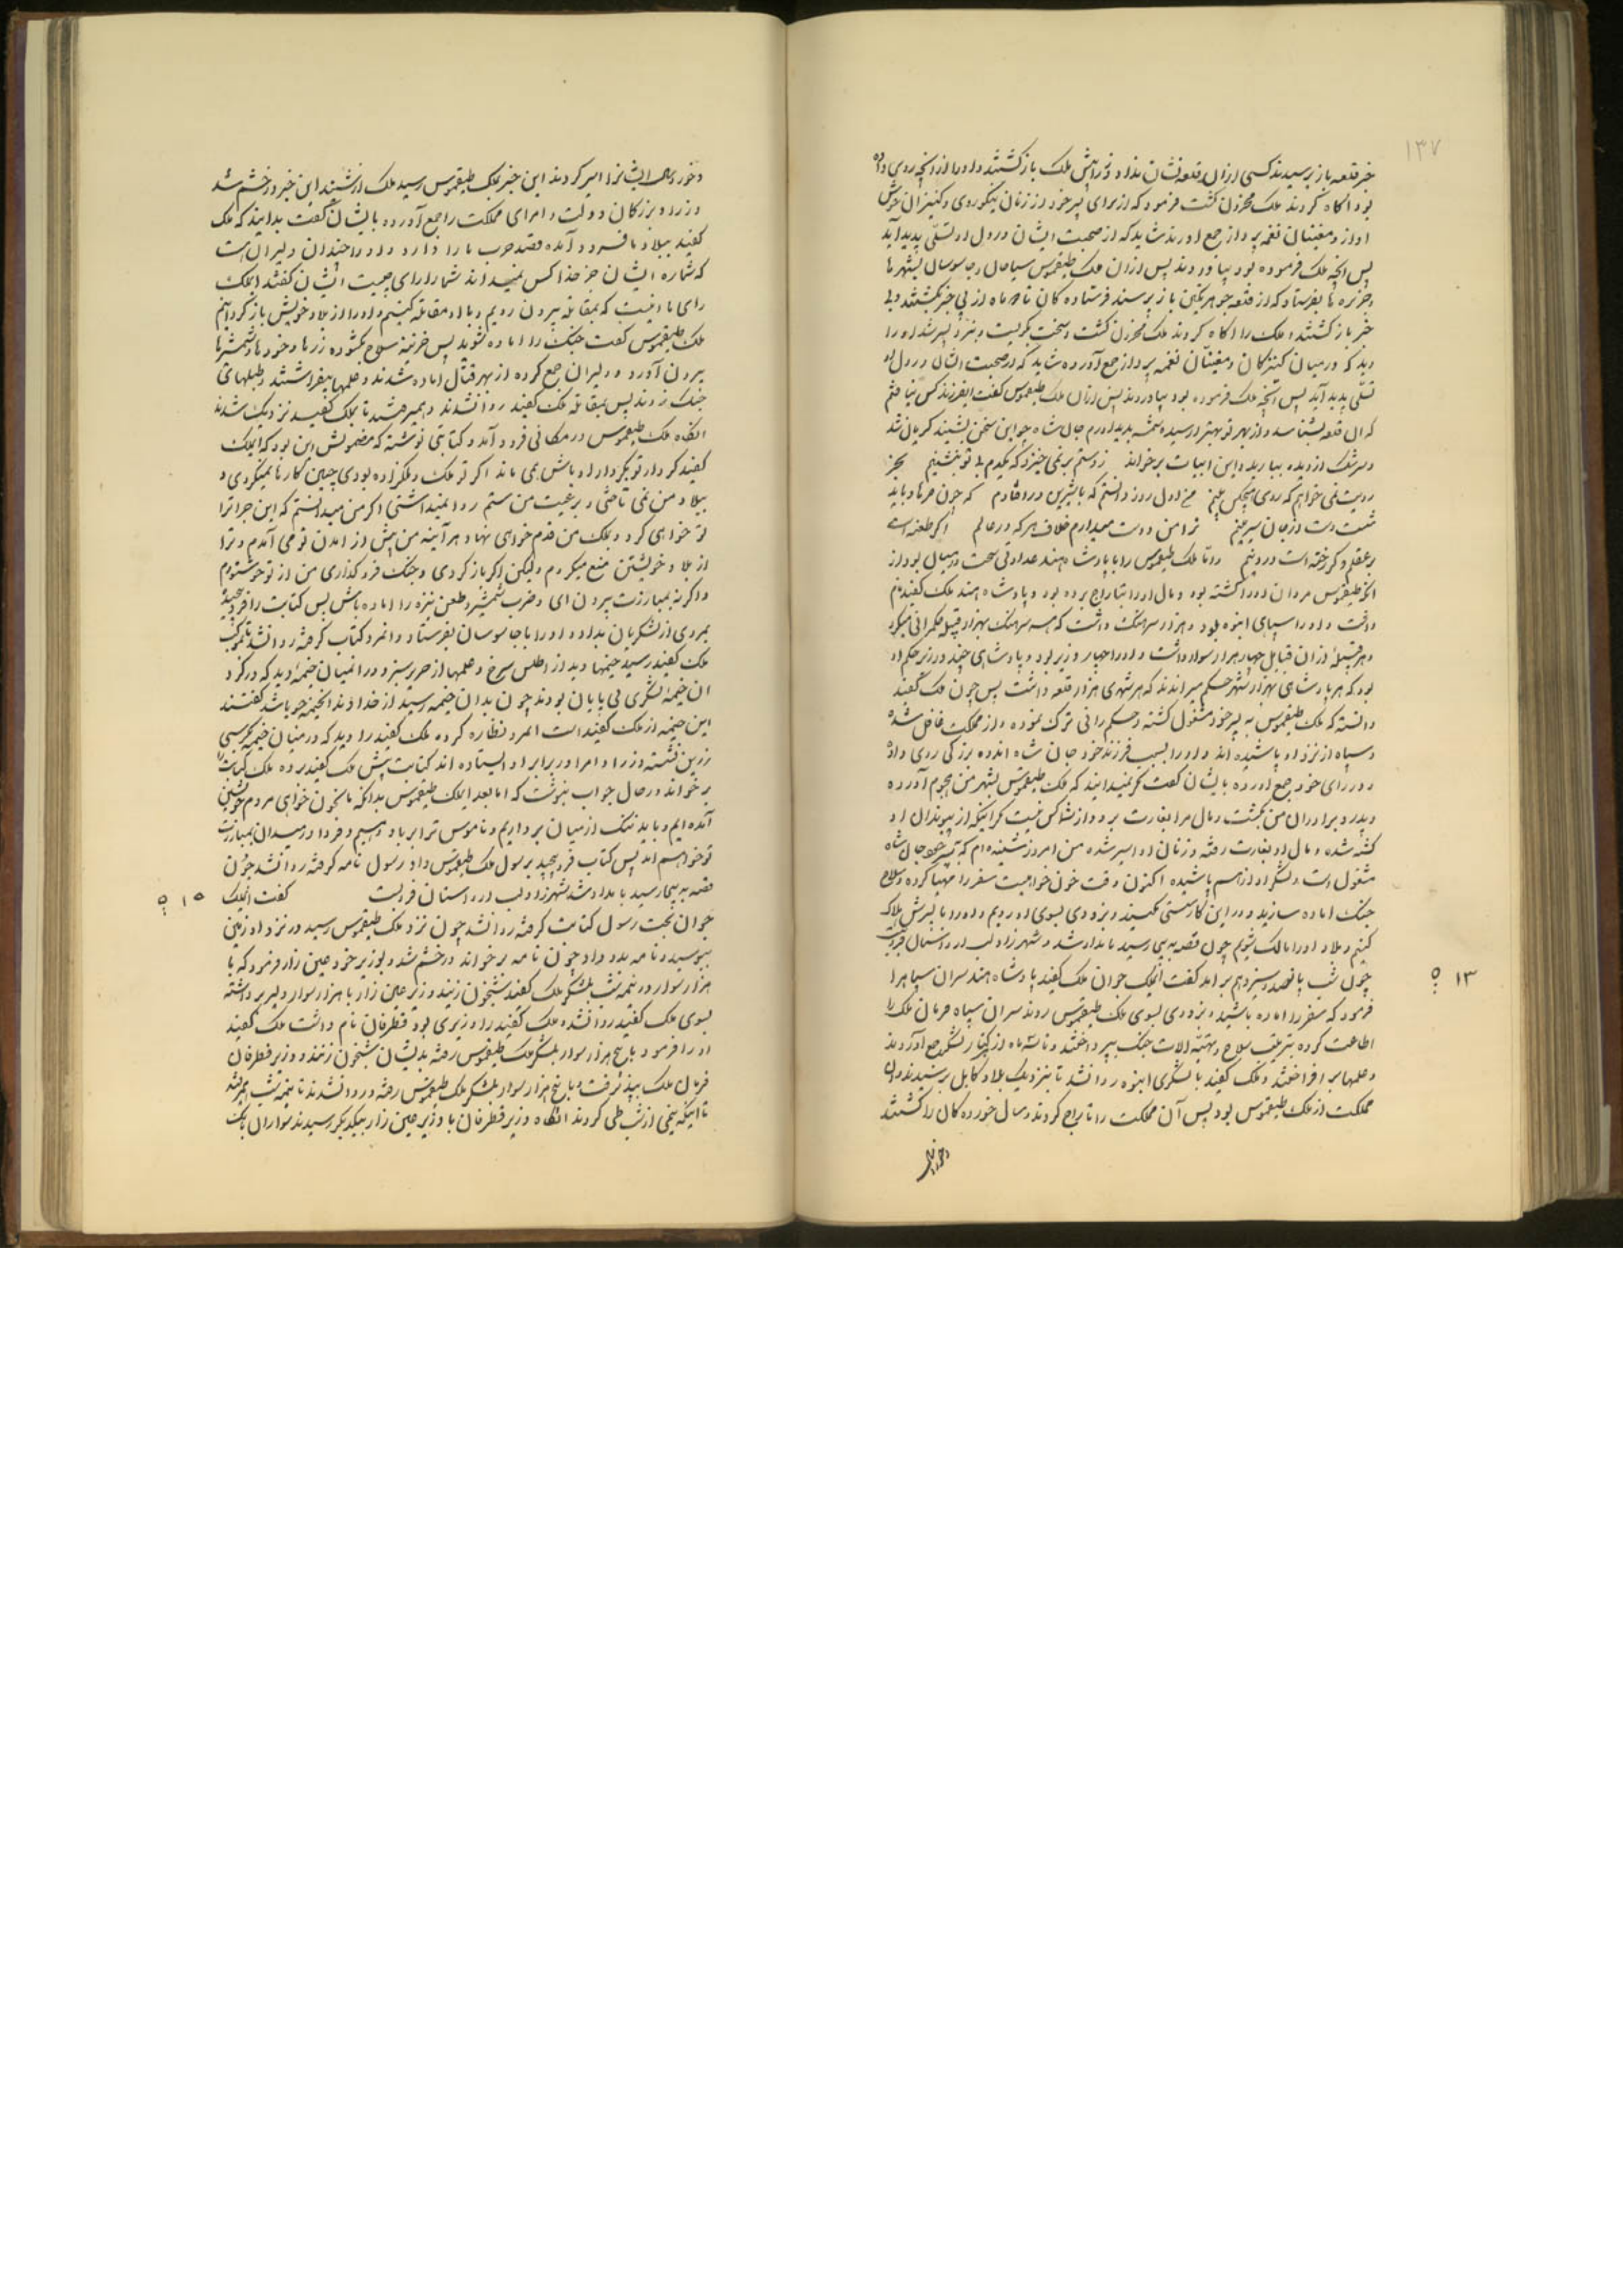 ۱۳۷
خبر قلعه باز پرسیدند کسی از ان قلعه نشان نداد و نزد پیش ملک باز گشتند و او را از انچه روی داده
بود اکاه کردند ملک محزون گشت فرمود که از برای پسر خود از زنان نیکوروی و کنیزان خوش
اواز و مغنیان نغمه پرداز جمع اورند شاید که از صحبت ایشان در دل او تسلی پدید آید
پس انچه ملک فرموده بود بیاوردند پس از ان ملک طیغموس سیاحان و جاسوسان بشهرها
و جزیره ها بفرستاد که از قلعه جوهر نگین باز پرسند فرستاده کان تا دو ماه از پی خبر بگشتند و بی
خبر باز گشتند و ملک را اکاه کردند ملک محزون گشت و سخت بگریست و بنزد پسر شد او را
دید که در میان کنیزکان و مغنیان نغمه پرداز جمع آورده شاید که از صحبت ایشان در دل او
تسلی پدید آید پس انچه ملک فرموده بود بیاوردند پس از ان ملک طیغموس گفت ایفرزند کس نیافتم
که ان قلعه بشناسد و از بهر تو بهتر از سیده شمسه پدید اورم جان شاه چو این سخن بشنید گریان شد
و سرشک از دیده بباریده این ابیات برخواند ز دستم بر نمی خیزد که یکدم بی تو بنشینم بجز
رویت نمی خواهم که روی هیچکس بینم من اول روز دانستم که با شیرین در افتادم که چون فرهاد باید
شست دست از جان شیرینم ترا من دوست میدارم خلاف هر که در عالم اگر طعنه است
بر عقلم و گر رخنه است در دینم و اما ملک طیغموس را با پادشاه هند عداوتی سخت در میان بود از
انکه طیغموس مردان او را کشته بود و مال او را بتاراج برده بود و پادشاه هند ملک کفید نام
داشت و او را سپاهی انبوه بود و هزار سرهنگ داشت که هر سرهنگ بهزار قبیله حکمرانی میکرد
و هر قبیله از ان قبایل چهار هزار سوار داشت و او را چهار وزیر بود و پادشاهی چند در زیر حکم او
بود که هر پادشاهی بهزار شهر حکم میراندند که هر شهری هزار قلعه داشت پس چون ملک کفید
دانسته که ملک طیغموس به پسر خود مشغول گشته و حکمرانی ترک نموده و از مملکت غافل شده
و سپاه از نزد او پاشیده اند و او را بسبب فرزند خود جان شاه اندوه بزرگی روی داده
وزرای خود جمع اورده بایشان گفت مگر نمیدانید که ملک طیغموس بشهر من هجوم آورده
و پدر و برادران من بکشت و مال مرا بغارت برد و از شما کس نیست مگر اینکه از پیوندان او
کشته شده و مال او بغارت رفته و زنان او اسیر شده من امروز شنیده ام که به پسر خود جان شاه
مشغول است و لشگر او از هم پاشیده اکنون وقت خون خواهیست سفر را مهیا کرده و سلاح
جنک اماده سازید و در این کار سستی مکنید و بزودی بسوی او رویم و او را با پسرش هلاک
کنیم و بلاد او را مالک شویم چون قصه بدینجا رسید بامداد شد و شهرزاد لب از داستان فروبست
چون شب پانصد و سیزدهم بر امد گفت ایملک جوان ملک کفید پادشاه هند سران سپاه را
۱۳ ۵
فرمود که سفر را اماده باشید و بزودی بسوی ملک طیغموس روند سران سپاه فرمان ملک را
اطاعت کرده بترتیب سلاح و تهیه الات جنک بپرداختند و تا سه ماه از کنار لشگر جمع آوردند
و علمها بر افراختند و ملک کفید با لشگری انبوه روانشد تا بنزدیک بلاد کابل برسیدند و ان
مملکت از ملک طیغموس بود پس آن مملکت را تاراج کردند و سال خورده کان را کشتند
و خوردسالان
و خوردسالان ایشانرا اسیر کردند این خبر بملک طیغموس رسید ملک از شنیدن این خبر در خشم شد
وزرا و بزرکان دولت و امرای مملکت را جمع آورده بایشان گفت بدانید که ملک
کفید ببلاد ما فرود آمده قصد حرب ما را دارد و او را چندان دلیران هست
که شماره ایشان جز خدا کس نمیداند شما را رای چیست ایشان گفتند ایملک
رای ما اینست که بمقابله بیرون رویم و با او مقاتله کنیم و او را از بلاد خویش باز گردانیم
ملک طیغموس گفت جنک را اماده شوید پس خزینه سلاح بگشوده زره ها و خودها و شمشیرها
بیرون آورد و دلیران جمع کرده از بهر قتال اماده شدند و علمها بیفراشتند و طبلهای
جنک زدند پس بمقابله ملک کفید روانشدند و همیرفتند تا بملک کفید نزدیک شدند
انگاه ملک طیغموس در مکانی فرود آمد و کتابتی نوشته که مضمونش این بود که ایملک
کفید کردار تو بکردار اوباش همی ماند اگر تو ملک و ملکزاده بودی چنین کارها نمیکردی و
ببلاد من نمی تاختی و برعیت من ستم روا نمیداشتی اگر من میدانستم که این جرات را
تو خواهی کرد و بملک من قدم خواهی نهاد هر آینه من پیش از امدن تو می آمدم و ترا
از بلاد خویشتن منع میکردم ولیکن اگر باز گردی و جنک فرو گذاری من از تو خوشنودم
و اگر نه بمبارزت بیرون ای و ضرب شمشیر و طعن نیزه را اماده باش پس کتابت را فرو پیچیده
بمردی از لشگریان بداد و او را با جاسوسان بفرستاد و انمرد کتاب گرفته روانشد تا بلشگر
ملک کفید رسید خیمها دید از اطلس سرخ و علمها از حریر سبز و در انمیان خیمه دید که در گرد
ان خیمه لشگری بی پایان بودند چون بدان خیمه رسید از خداوند انخیمه جویا شد گفتند
این خیمه از ملک کفید است انمرد نظاره کرده ملک کفید را دید که در میان خیمه بکرسی
زرین نشسته وزرا و امرا در برابر او ایستاده اند کتابت پیش ملک کفید برده ملک کتابت را
بر خواند در حال جواب بنوشت که اما بعد ایملک طیغموس بدانکه ما بخون خواهی مردم خویشتن
آمده ایم و باید ننک از میان برداریم و ناموس ترا بر باد دهیم و فردا در میدان بمبارزت
تو خواهم امد پس کتاب فرو پیچید برسول ملک طیغموس داد رسول نامه گرفته روانشد چون
قصه بدینجا رسید بامداد شد شهرزاد لب از داستان فروبست گفت ایملک
۱۵ ۵
جوان بخت رسول کتابت گرفته روانشد چون نزد ملک طیغموس رسید در نزد او زمین
ببوسید و نامه بدو داد چون نامه برخواند در خشم شد و بوزیر خود عین زار فرمود که با
هزار سوار در نیمه شب بلشگر ملک کفید شبیخون زنید وزیر عین زار با هزار سوار دلیر برداشته
بسوی ملک کفید روانشد و ملک کفید را وزیری بود قطرفان نام داشت ملک کفید
او را فرمود با پنج هزار سوار بلشگر ملک طیغموس رفته بدیشان شبیخون زنند وزیر قطرفان
فرمان ملک بپذیرفت و با پنج هزار سوار بلشگر ملک طیغموس رفته و روانشدند تا نیمه شب همیرفتند
تا اینکه نیمی از شب طی کردند انگاه وزیر قطرفان با وزیر عین زار بیکدیگر رسیدند سواران بانک